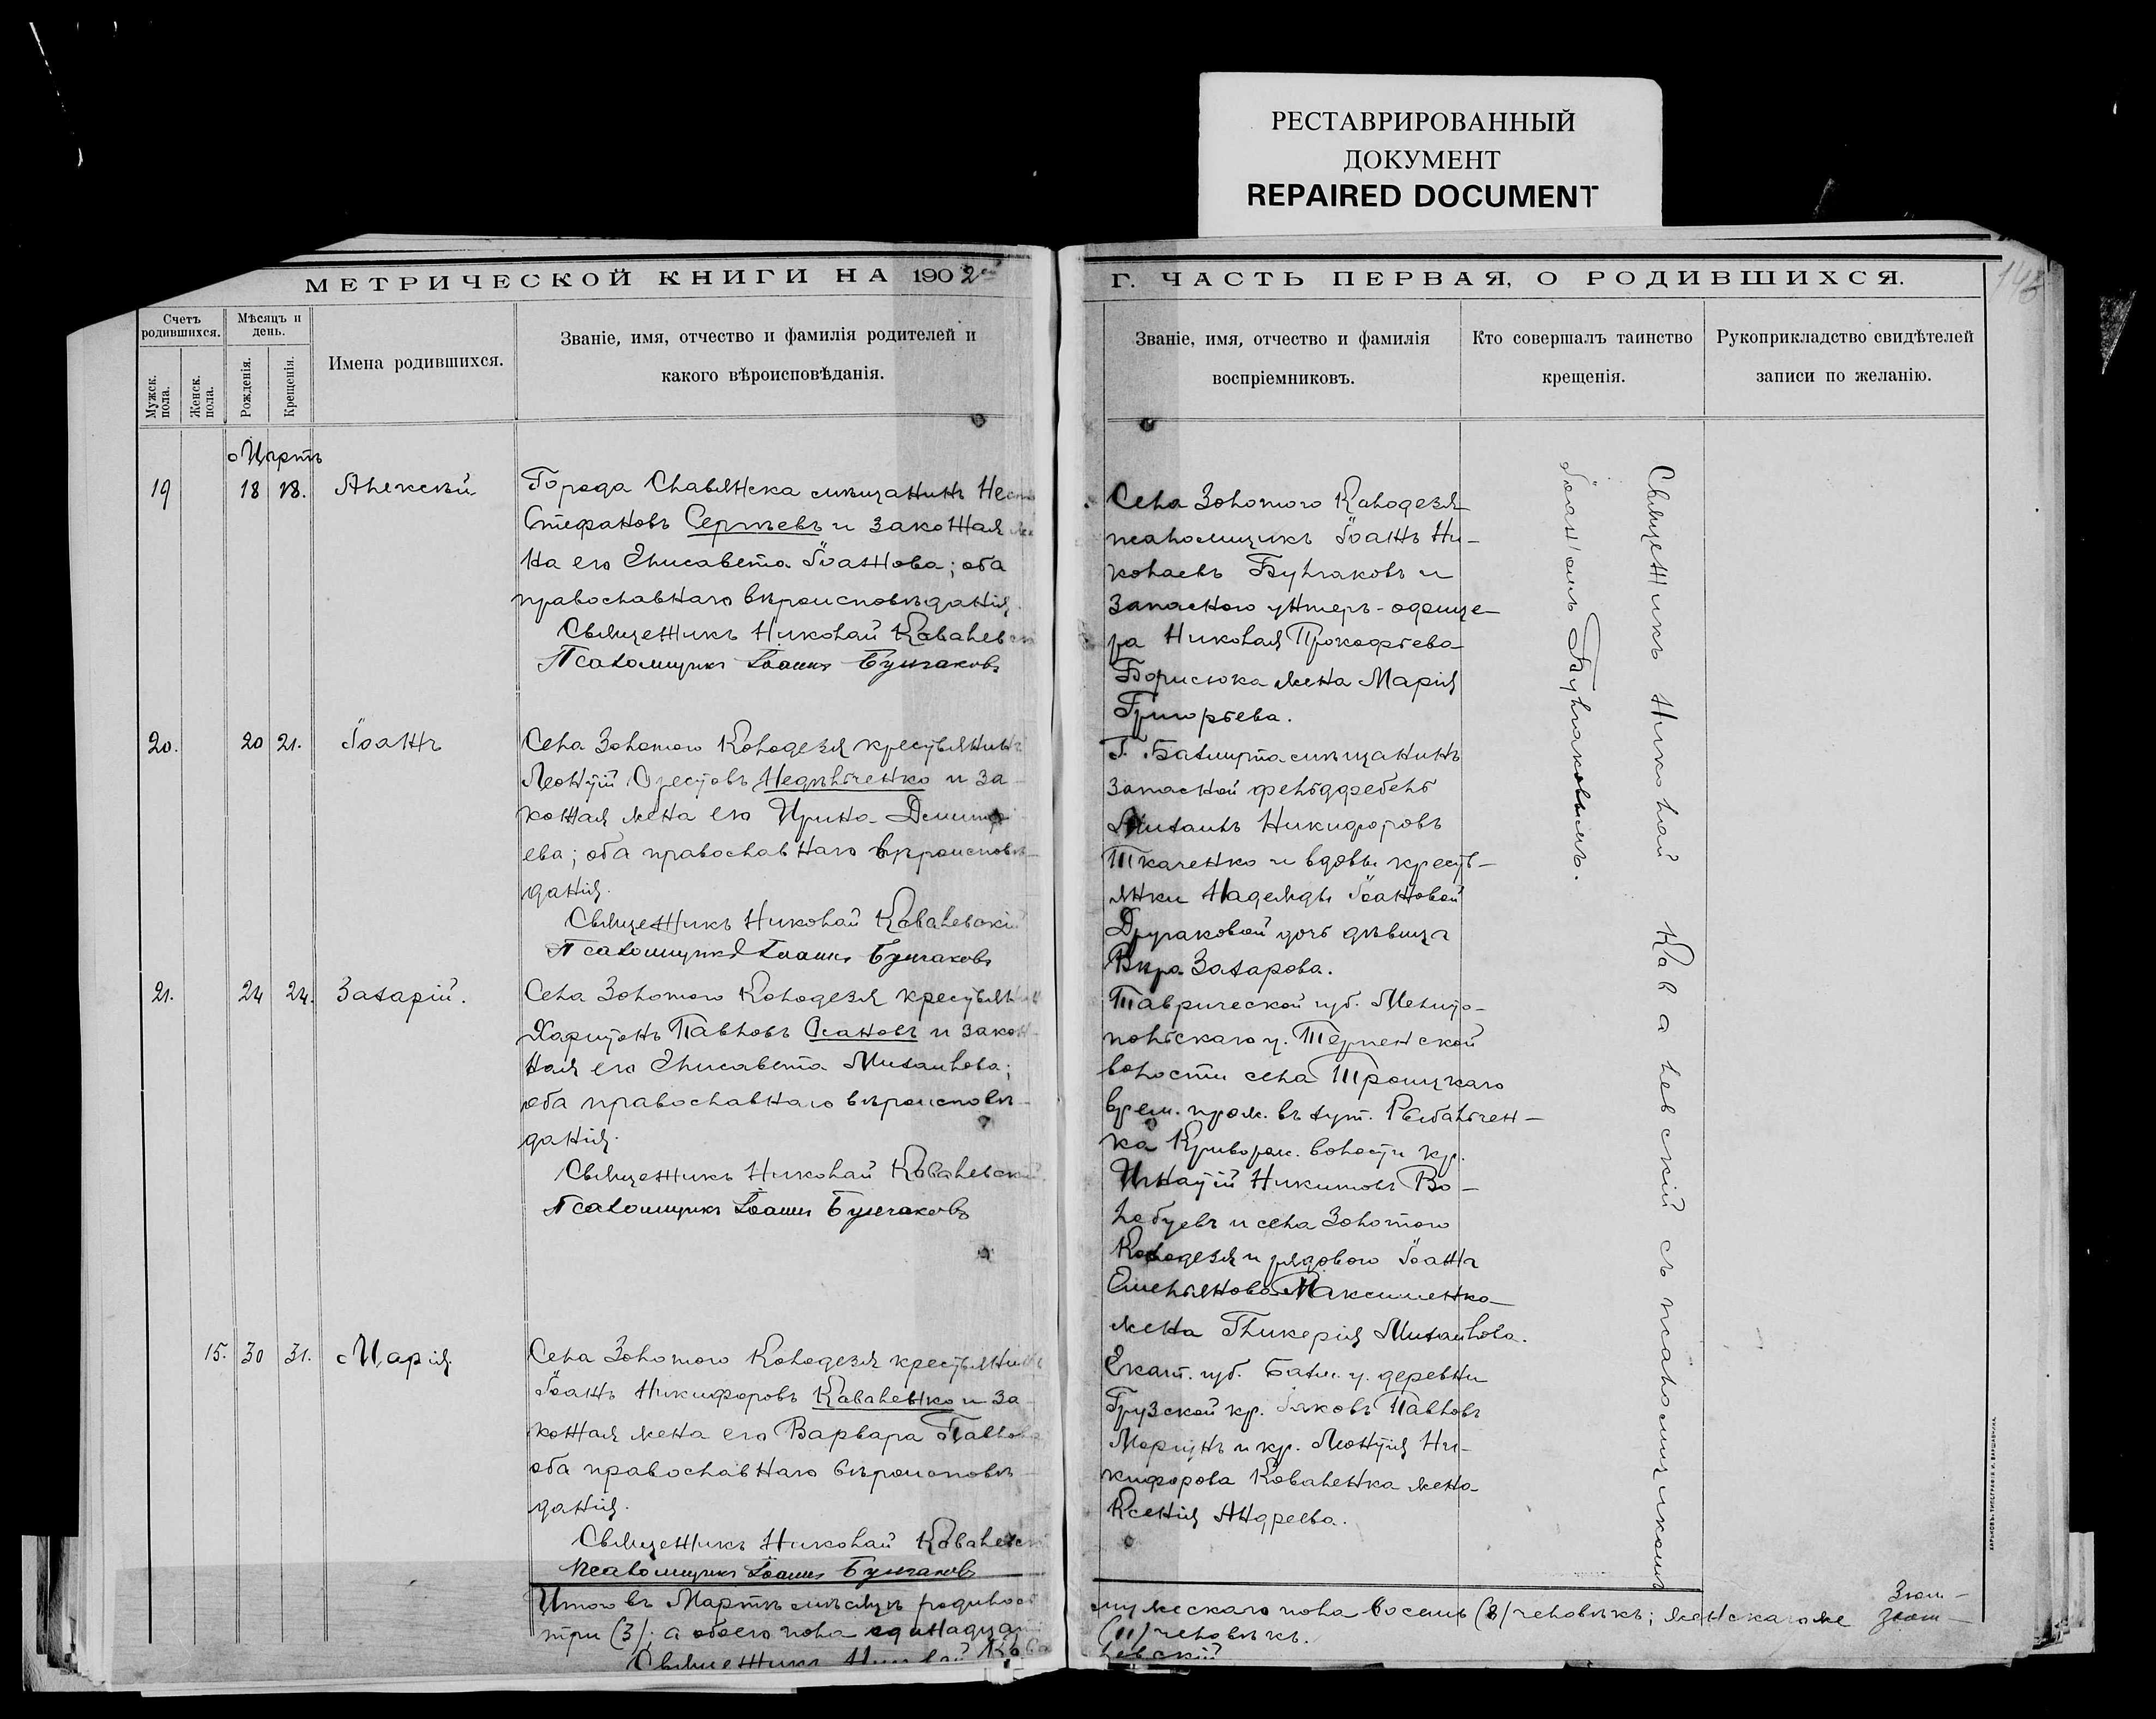 РЕСТАВРИРОВАННЫЙ
ДОКУМЕНТ
REPAIRED DOCUMENT
МЕТРИЧЕСКОЙ КНИГИ НА 1902
Счетъ родившихся.
Мѣсяцъ и день.
Мужск. пола.
Женск. пола.
Рожденія.
Крещенія.
Имена родившихся.
Званіе, имя, отчество и фамилія родителей и
какого вѣроисповѣданія.
Мартъ
19 18 18. Алексѣй
Города Славянска мѣщанинъ
Стефановъ Сергѣевъ и законная
на его Елисавета Іоаннова; оба
православнаго вѣроисповѣданія.
Священникъ Николай Ковалевск
Псаломщикъ Іоаннъ Булгаковъ
20. 20 21. Іоаннъ
Села Золотого Колодезя крестьянинъ
Леонтій Орестовъ Недѣльченко и за-
конная жена его Ирина Димитрі
ева; оба православнаго вѣроисповѣ-
данія.
Священникъ Николай Ковалевскій
Псаломщикъ Іоаннъ Булгаковъ
21. 24 24. Захарій.
Села Золотого Колодезя крестьянинъ
Харитонъ Павловъ Осановъ и закон-
ная его Елисавета Михаилова;
оба православнаго вѣроисповѣ-
данія.
Священникъ Николай Ковалевскій
Псаломщикъ Іоаннъ Булгаковъ
15. 30 31. Марія.
Села Золотого Колодезя крестьянинъ
Іоаннъ Никифоровъ Коваленко и за-
конная жена его Варвара Павлова
оба православнаго вѣроисповѣ-
данія.
Священникъ Николай Ковалевск
Псаломщикъ Іоаннъ Булгаковъ
Итого въ Мартѣ мѣсяцѣ родилось
три (3); а обоего пола одинадцать
Священникъ Николай Кова
Г. ЧАСТЬ ПЕРВАЯ, О РОДИВШИХСЯ.
146
Званіе, имя, отчество и фамилія
воспріемниковъ.
Кто совершалъ таинство
крещенія.
Рукоприкладство свидѣтелей
записи по желанію.
Села Золотого Колодезя
псаломщикъ Іоаннъ Ни-
колаевъ Булгаковъ и
запасного унтеръ-офице-
ра Николая Прокофьева
Борисюка жена Марія
Григорьева.
Г. Бахмута мѣщанинъ
запасной фельдфебель
Михаилъ Никифоровъ
Ткаченко и вдовы кресть-
янки Надежды Іоанновой
Друмаковой дочь дѣвица
Вѣра Захарова.
Таврической губ. Мелито-
польскаго у. Терпенской
волости села Троицкаго
врем. прож. въ хут. Рыбальчен-
ка Криворож. волости кр.
Игнатій Никитовъ Во-
лобуевъ и села Золотого
Колодезя рядового Іоанна
Емельянова Максименко
жена Гликерія Михаилова.
Екат. губ. Бахм. у. деревни
Грузской кр. Іаковъ Павловъ
и кр. Леонтія Ни-
кифорова Коваленка жена
Ксенія Андреева.
Священникъ Николай Ковалевскій съ псаломщикомъ
Іоанномъ Булгаковымъ.
мужескаго пола восемь (8) человѣкъ; женскаго же
(11) человѣкъ.
левскій
ХАРЬКОВЪ. ТИПОГРАФІЯ И. ВАРШАВЧИКА.